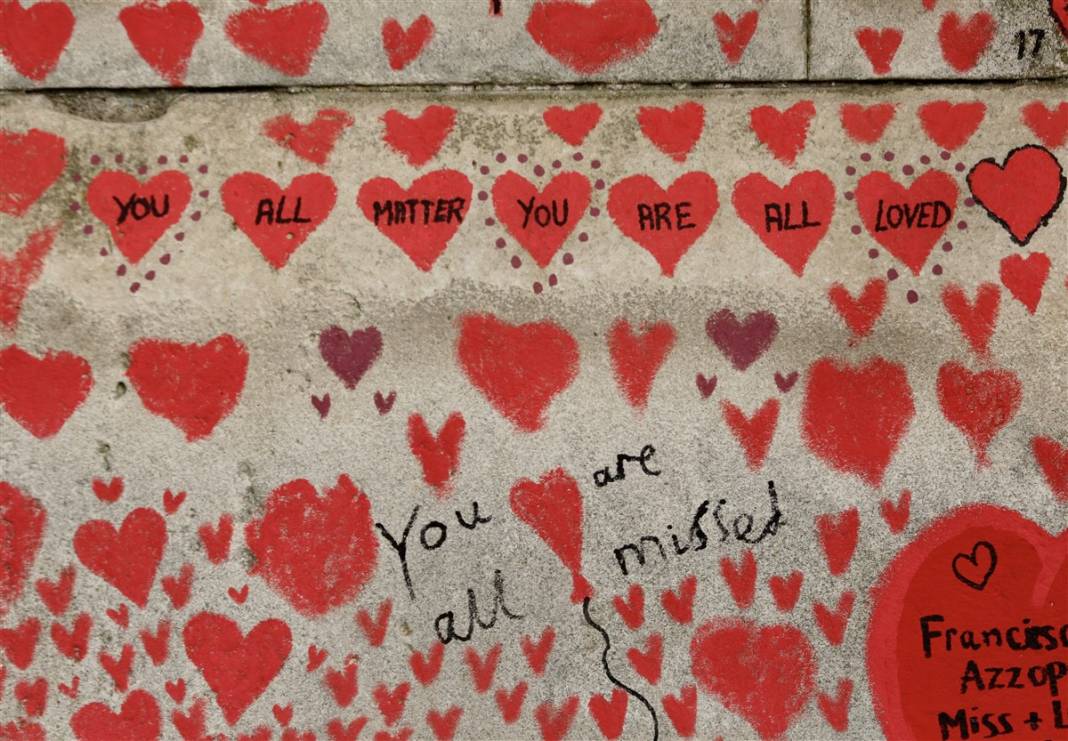 17
YOU ALL MATTER YOU ARE ALL LOVED
You are
all missed
Francisc
Azzop
Miss + L